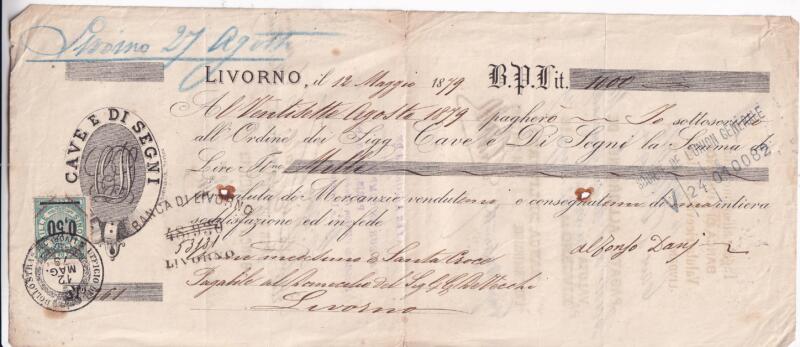 Livorno 27 Agosto
LIVORNO, il 12 Maggio 1879 B.P.Lit. 1000
Al Ventisette Agosto 1879 pagherò Io sottoscritto
all'Ordine dei Sigg. Cave e Di Segni la Somma di
Lire Itne Mille
valuta di Mercanzie vendutemi e consegnatemi di mia intiera
sodisfazione ed in fede
CAVE E DI SEGNI
BANCA DI LIVORNO
LIVORNO
BANQUE DE L'UNION GENERALE
240 0082
0,50
12
MAG
Alfonso
medesimo di Santa Croce
Pagabile al Domicilio del Sig.
Livorno